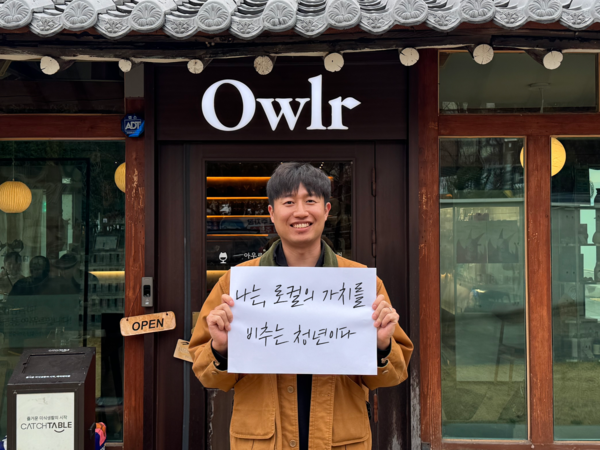 Owlr
ADT
나는, 로컬의 가치를
비추는 청년이다
OPEN
CATCHTABLE